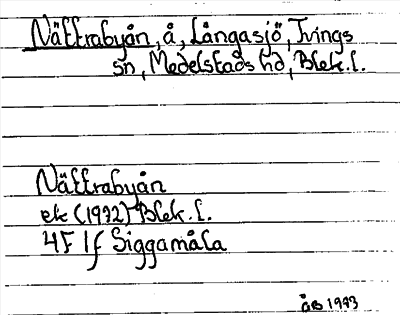 Nättrabyån, å, Långasjö, Tvings
sn, Medelstads hd, Blek. l.
Nättrabyån
ek (1972) Blek. l.
4F 1f Siggamåla
ÅB 1973